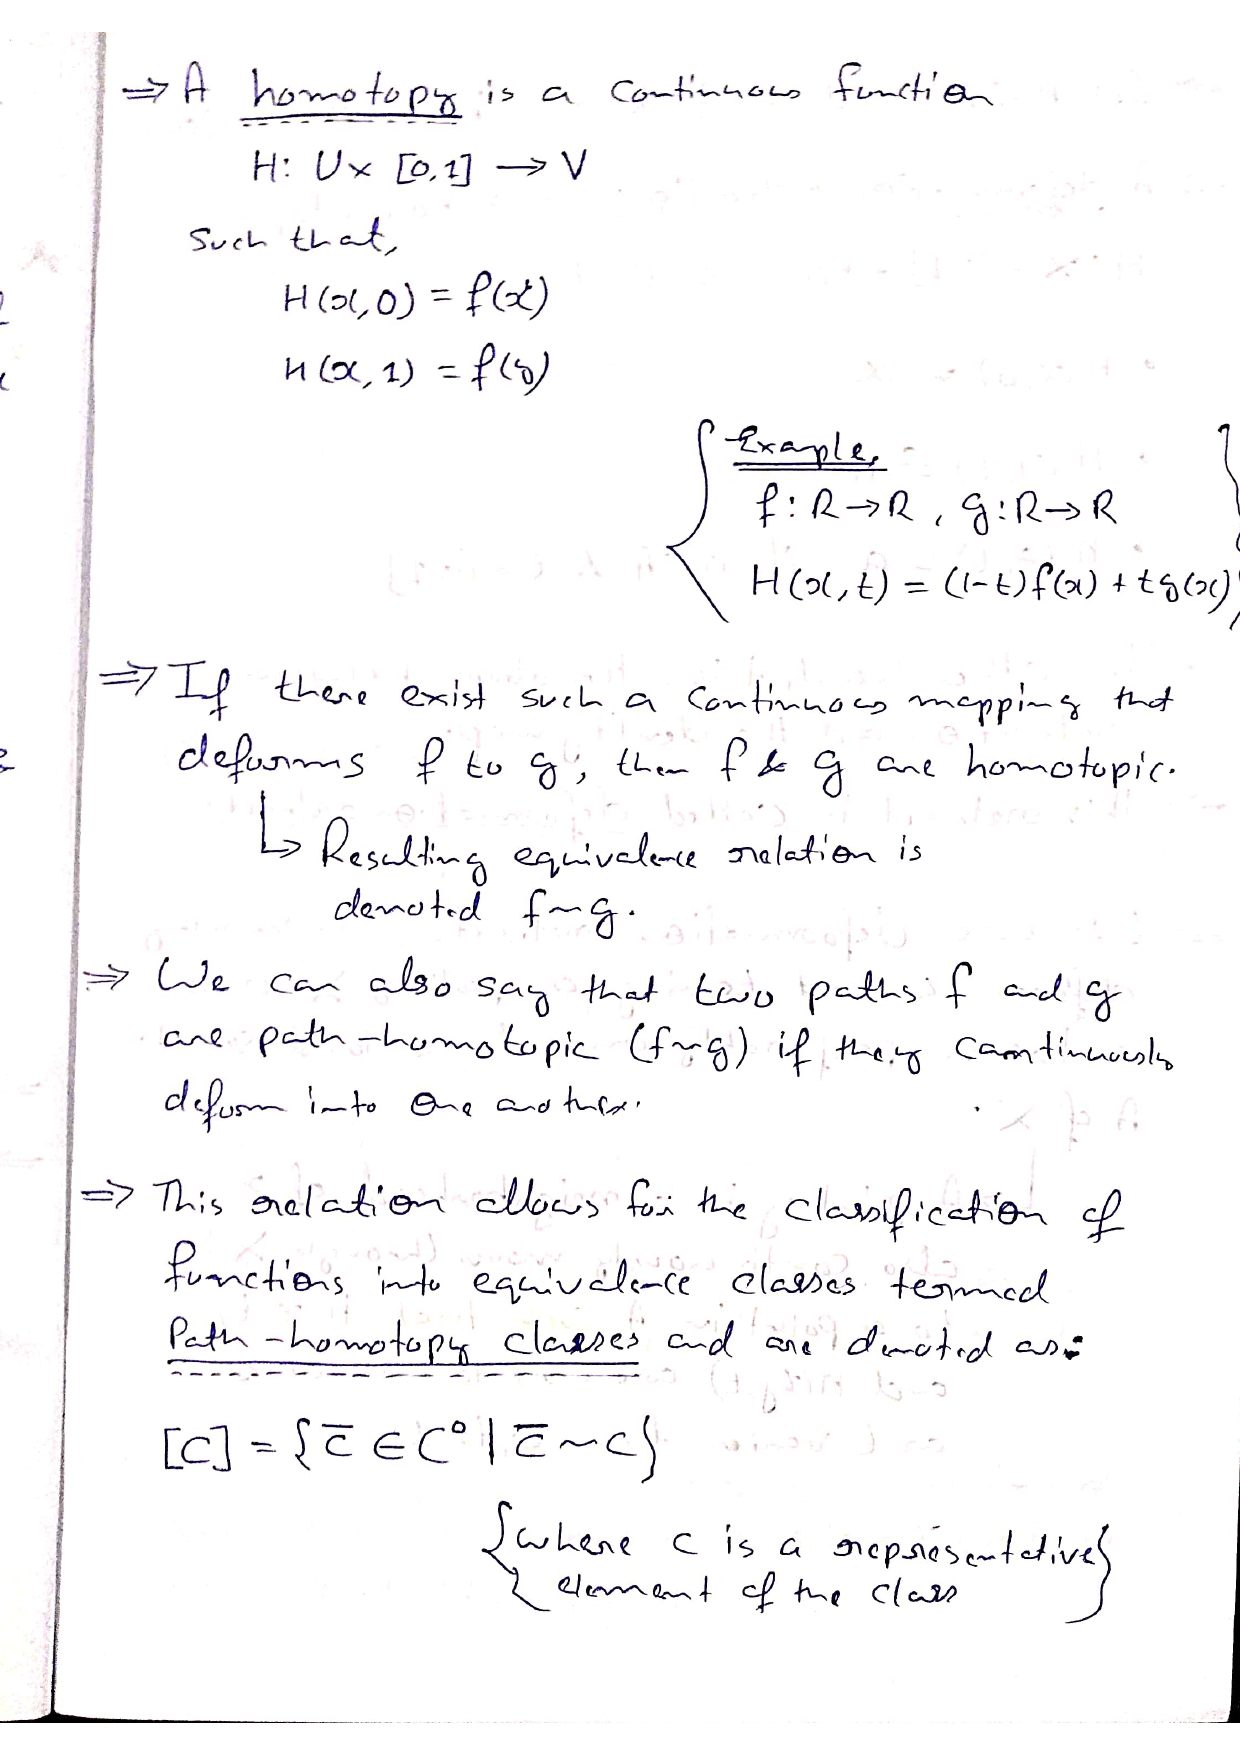 ⇒ A homotopy is a continuous function
H: U × [0,1] → V
Such that,
H(x,0) = f(x)
H(x,1) = f(g)
Exaple,
f: R→R, g: R→R
H(x,t) = (1-t)f(x) + tg(x)
⇒ If there exist such a continuous mapping that
deforms f to g, then f & g are homotopic.
↳ Resulting equivalence relation is
denoted f~g.
⇒ We can also say that two paths f and g
are path-homotopic (f~g) if they continuously
deform into one another.
⇒ This relation allows for the classification of
functions into equivalence classes termed
Path-homotopy classes and are denoted as:
[C] = {c̅ ∈ C⁰ | c̅ ~ c}
{where c is a representative
element of the class}